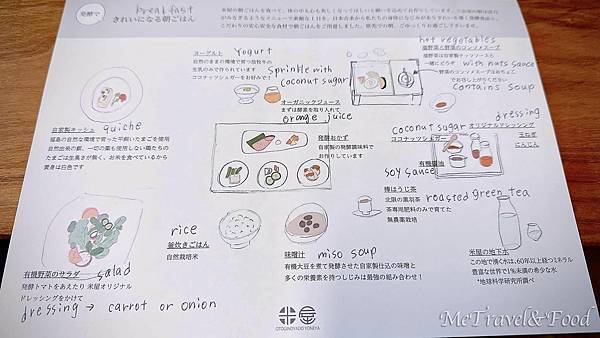 発酵で
きれいになる朝ごはん
breakfast
ヨーグルト Yogurt
自然のままの環境で育つ放牧牛の
生乳のみで作られています
ココナッツシュガーをお好みで！
Sprinkle with
coconut sugar
オーガニックジュース
まずは酵素を取り入れて
orange juice
hot vegetables
温野菜と野菜のコンソメスープ
温野菜は自家製ナッツソースと
一緒にどうぞ with nuts sauce
野菜のコンソメスープはおちょこ
でお召し上がりください
contains soup
自家製キッシュ quiche
福島の自然な環境で育った平飼いたまごを使用
自然由来の餌、一切の薬も使用しない鶏たちの
たまごは生臭さが無く、お米を食べているから
黄身は白色です
発酵おかず
自家製の発酵調味料で
お作りしています
dressing
coconut sugar オリジナルドレッシング
ココナッツシュガー 玉ねぎ
にんじん
有機醤油
soy sauce
棒ほうじ茶 roasted green tea
北限の薫羽茶
茶専用肥料のみで育てた
無農薬栽培
rice
釜炊きごはん
自然栽培米
味噌汁 miso soup
有機大豆を煮て発酵させた自家製仕込の味噌と
多くの栄養素を持つしじみは最強の組み合わせ！
米屋の地下水
この地で湧く水は、60年以上経つミネラル
豊富な世界で1％未満の希少な水
*地球科学研究所調べ
有機野菜のサラダ salad
発酵トマトをあえたり 米屋オリジナル
ドレッシングをかけて
dressing → carrot or onion
OTOGINOYADO YONEYA
McTravel&Food